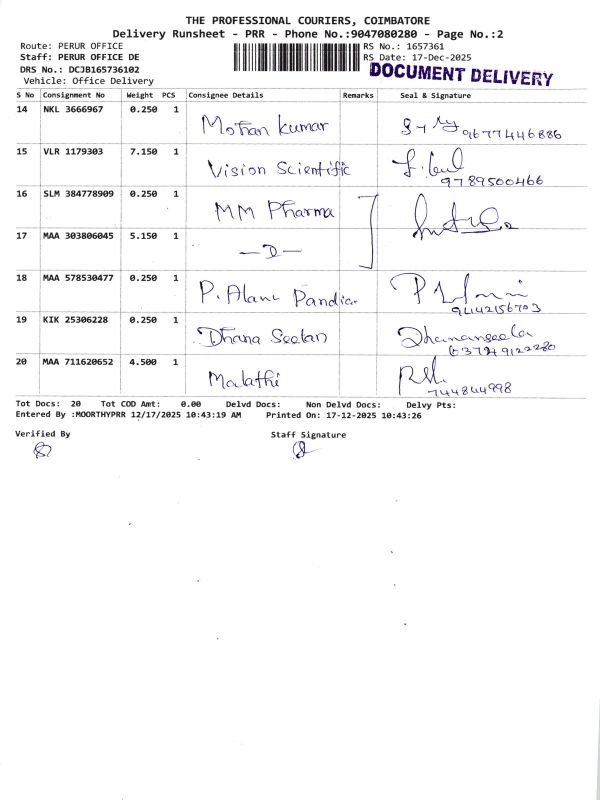 THE PROFESSIONAL COURIERS, COIMBATORE
Delivery Runsheet - PRR - Phone No.:9047080280 - Page No.:2
Route: PERUR OFFICE
RS No.: 1657361
Staff: PERUR OFFICE DE
RS Date: 17-Dec-2025
DRS No.: DCJB165736102
DOCUMENT DELIVERY
Vehicle: Office Delivery
S No Consignment No Weight PCS Consignee Details Remarks Seal & Signature
14 NKL 3666967 0.250 1 Mohan Kumar 9677446886
15 VLR 1179303 7.150 1 Vision Scientific
9789500466
16 SLM 384778909 0.250 1 MM Pharma
17 MAA 303806045 5.150 1 —D—
18 MAA 578530477 0.250 1 P. Alam Pandiar
19 KIK 25306228 0.250 1 Dhana Seelan Dhananseela
20 MAA 711620652 4.500 1 Malathi
Tot Docs: 20 Tot COD Amt: 0.00 Delvd Docs: Non Delvd Docs: Delvy Pts:
Entered By :MOORTHYPRR 12/17/2025 10:43:19 AM Printed On: 17-12-2025 10:43:26
Verified By Staff Signature